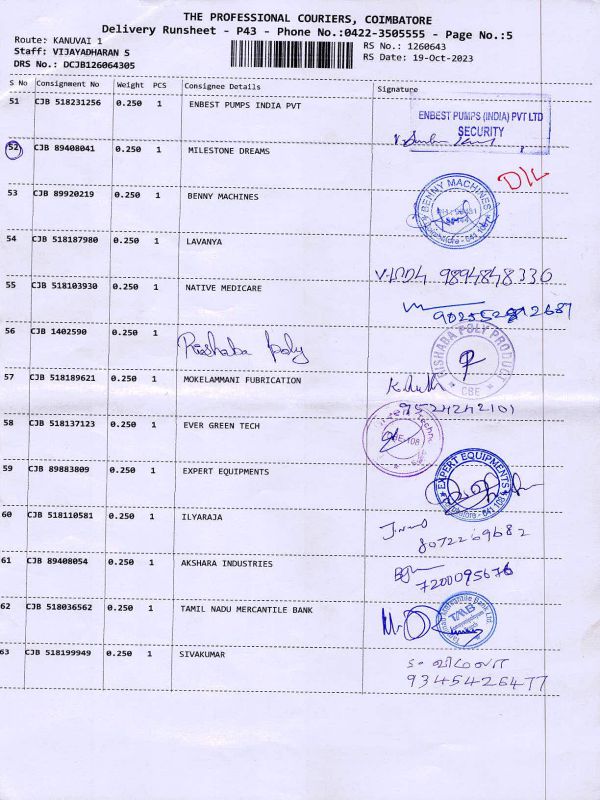 THE PROFESSIONAL COURIERS, COIMBATORE
Delivery Runsheet - P43 - Phone No.:0422-3505555 - Page No.:5
Route: KANUVAI 1
Staff: VIJAYADHARAN S
DRS No.: DCJB126064305
RS No.: 1260643
RS Date: 19-Oct-2023
S No Consignment No Weight PCS Consignee Details Signature
51 CJB 518231256 0.250 1 ENBEST PUMPS INDIA PVT
ENBEST PUMPS (INDIA) PVT LTD
SECURITY
52 CJB 89408041 0.250 1 MILESTONE DREAMS D/L
53 CJB 89920219 0.250 1 BENNY MACHINES
BENNY MACHINES
54 CJB 518187980 0.250 1 LAVANYA
9894848330
55 CJB 518103930 0.250 1 NATIVE MEDICARE
56 CJB 1402590 0.250 1 Rishaba Poly
RISHABA POLY PRODUCT
CBE
57 CJB 518189621 0.250 1 MOKELAMMANI FUBRICATION
9524242101
58 CJB 518137123 0.250 1 EVER GREEN TECH
59 CJB 89883809 0.250 1 EXPERT EQUIPMENTS
EXPERT EQUIPMENTS
60 CJB 518110581 0.250 1 ILYARAJA
8072269682
61 CJB 89408054 0.250 1 AKSHARA INDUSTRIES
7200095676
62 CJB 518036562 0.250 1 TAMIL NADU MERCANTILE BANK
TMB
63 CJB 518199949 0.250 1 SIVAKUMAR
9345426477